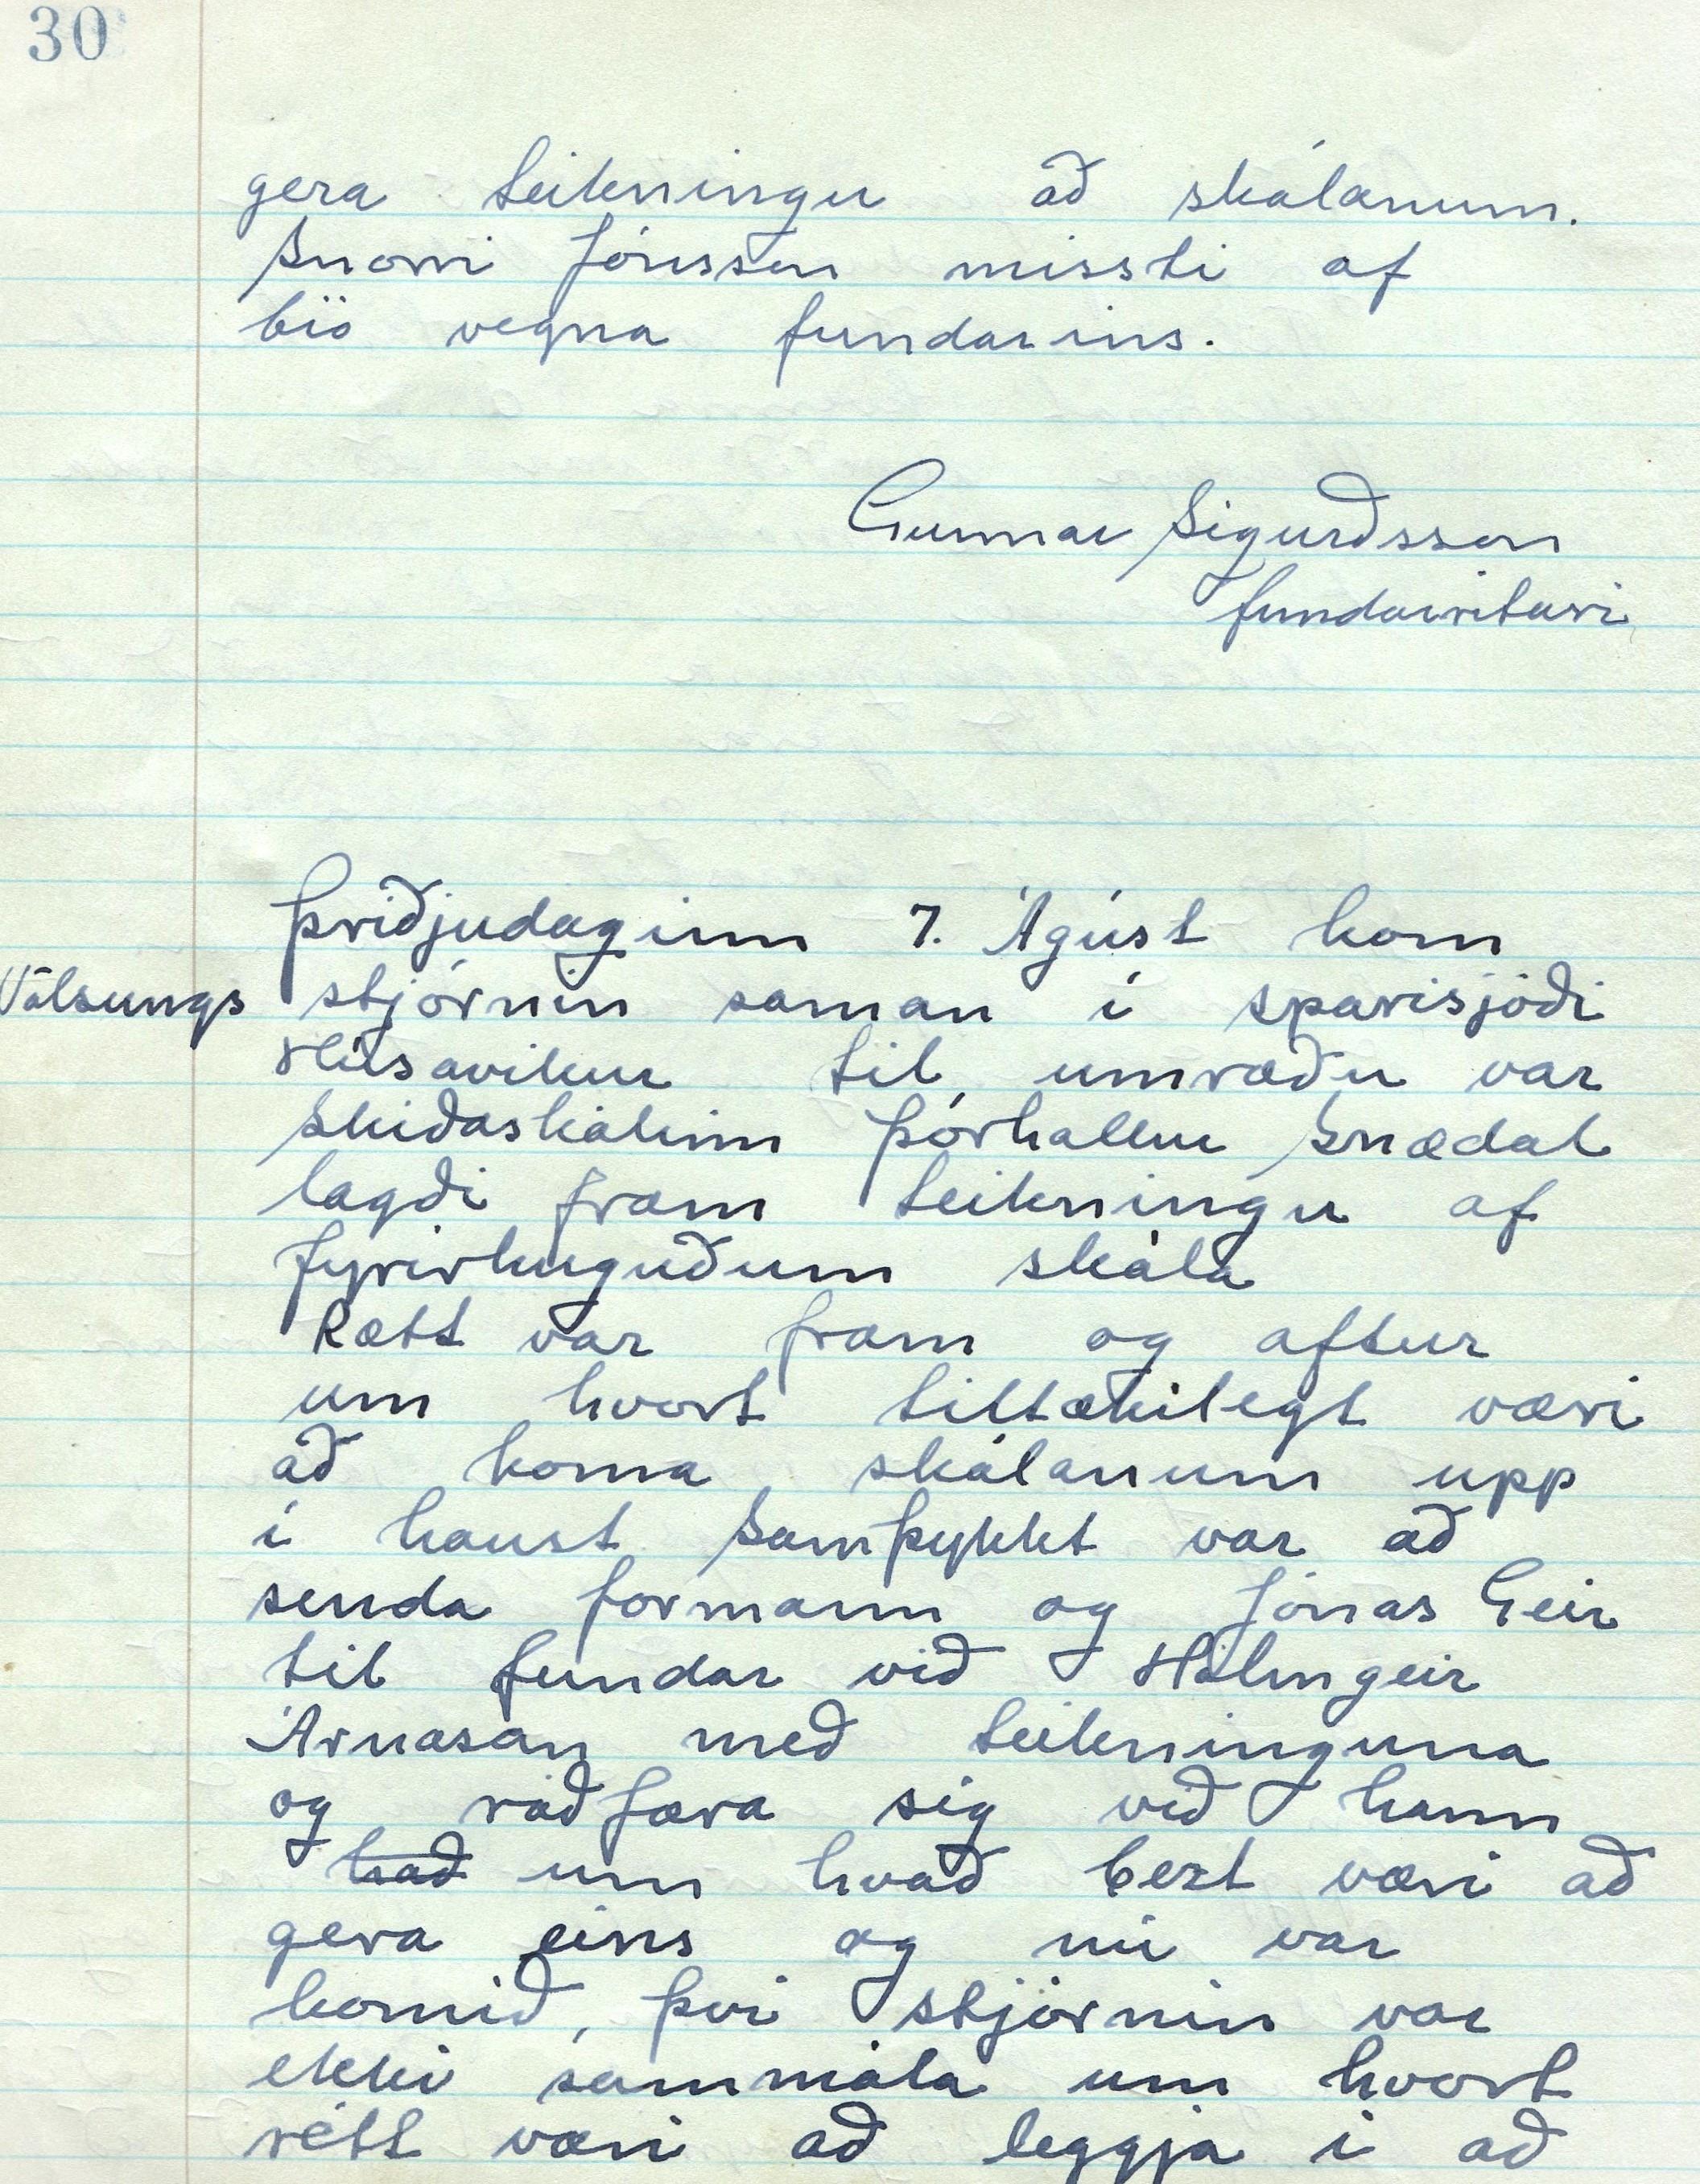 30
gera teikningu að skálanum.
Snorri Jónsson missti af
bíó vegna fundarins.
Gunnar Sigurðsson
fundarritari
Þriðjudaginn 7. Ágúst kom
Völsungs stjórnin saman í sparisjóði
Húsavíkur til umræðu var
Skíðaskálinn Þórhallur Snædal
lagði fram teikningu af
fyrirhuguðum skála
Rætt var fram og aftur
um hvort tiltækilegt væri
að koma skálanum upp
í haust Samþykkt var að
senda formann og Jónas Geir
til fundar við Hólmgeir
Árnason með teikninguna
og ráðfæra sig við hann
hað um hvað bezt væri að
gera eins og nú var
komið, því stjórnin var
ekki sammála um hvort
rétt væri að leggja í að